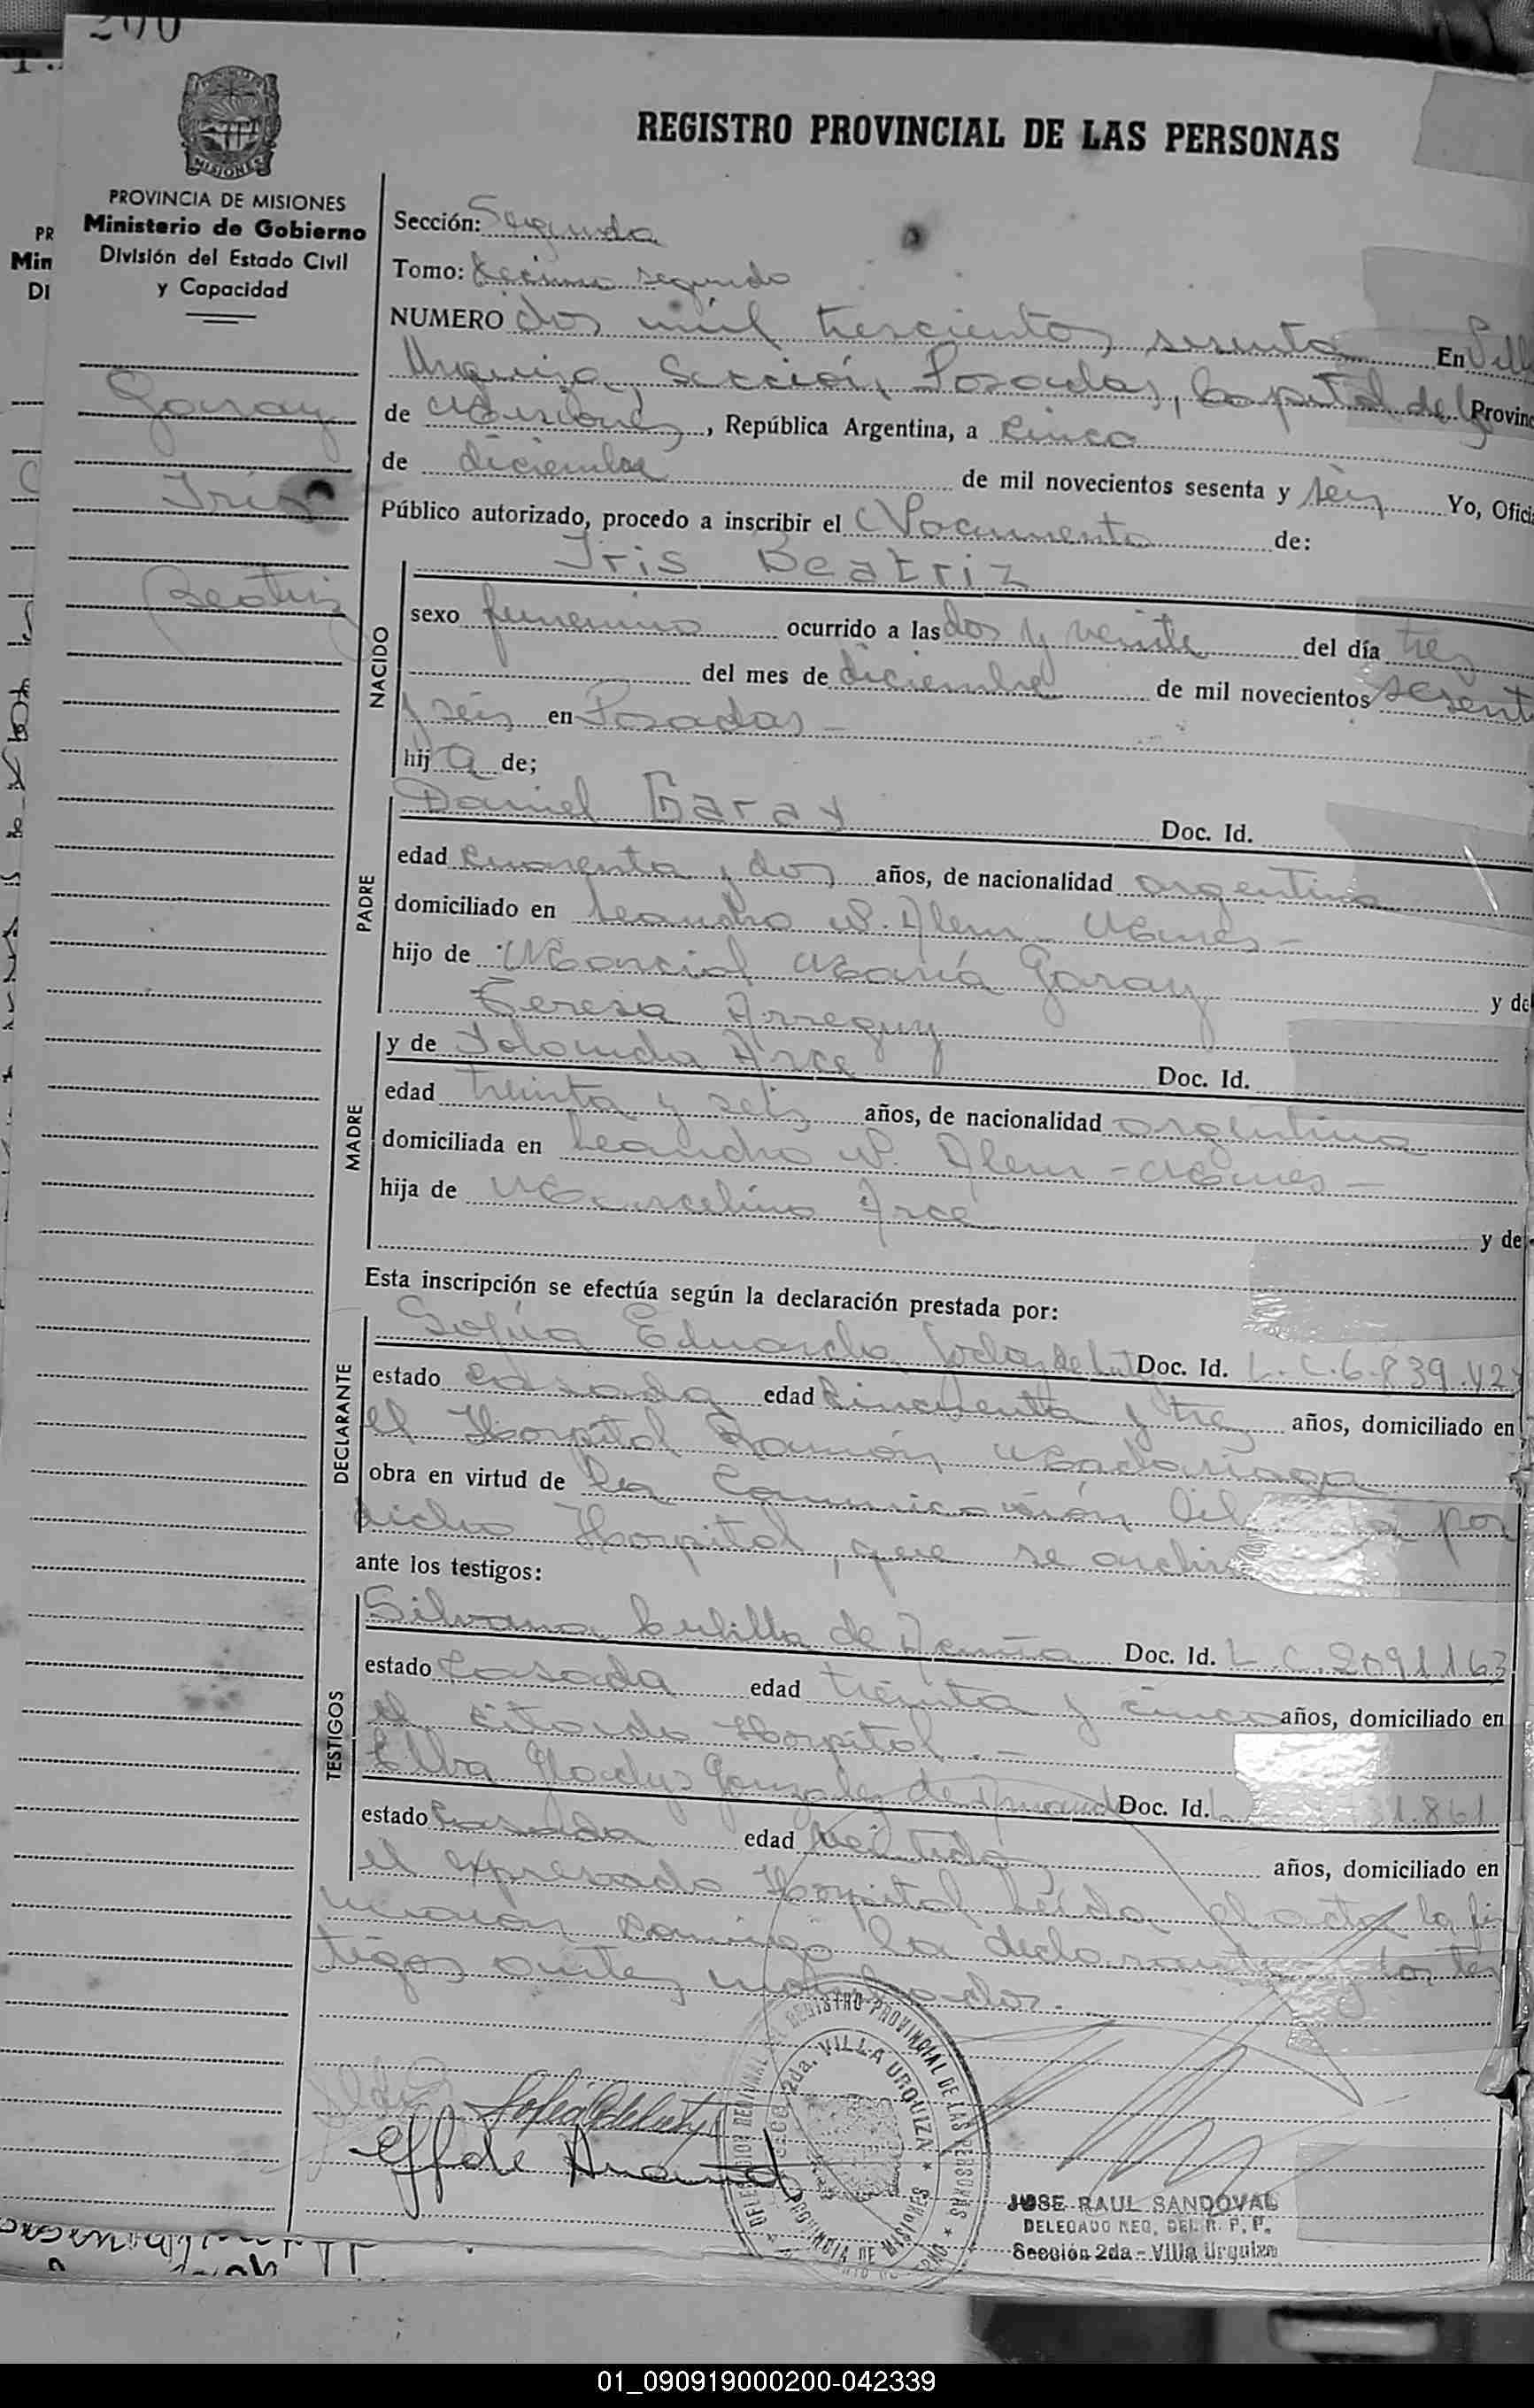 200
MISIONES
PROVINCIA DE MISIONES
Ministerio de Gobierno
División del Estado Civil
y Capacidad
Garay
Iris
Beatriz
REGISTRO PROVINCIAL DE LAS PERSONAS
Sección: Segunda
Tomo: Decimo segundo
NUMERO dos mil trescientos sesenta En Villa
Urquiza, Sección Posadas, Capital de la Provinc
de Misiones, República Argentina, a cinco
de diciembre de mil novecientos sesenta y seis Yo, Ofici
Público autorizado, procedo a inscribir el Nacimiento de:
Iris Beatriz
NACIDO
sexo femenino ocurrido a las dos y veinte del día tres
del mes de diciembre de mil novecientos sesent
y seis en Posadas -
hija de;
PADRE
Daniel Garay Doc. Id.
edad cuarenta y dos años, de nacionalidad argentina
domiciliado en Leandro N. Alem -
hijo de Marcial María Garay y de
Teresa Arreguy
MADRE
y de Iolanda Arce Doc. Id.
edad treinta y seis años, de nacionalidad argentina
domiciliada en Leandro N. Alem -
hija de Marcelino Arce y de
Esta inscripción se efectúa según la declaración prestada por:
DECLARANTE
Sofia Eduarda Doc. Id. L.C. 6.839.423
estado casada edad cincuenta y tres años, domiciliado en
el Hospital Ramón Madariaga
obra en virtud de la comunicación por
dicho Hospital, que se
ante los testigos:
TESTIGOS
Silvana de Acuña Doc. Id. L.C. 2091163
estado casada edad treinta y cinco años, domiciliado en
el citado Hospital. -
Elba Gladys Gonzalez de Doc. Id. L 31.861
estado casada edad años, domiciliado en
el expresado Hospital. Leída el acta la fir
conmigo la declarante y los tes
tigos antes nombrados.
DELEGACION REGIONAL REGISTRO PROVINCIAL DE LAS PERSONAS
Secc. 2da. VILLA URQUIZA
PROVINCIA DE MISIONES
JOSE RAUL SANDOVAL
DELEGADO REG. DEL R. P. P.
Sección 2da - Villa Urquiza
01_090919000200-042339